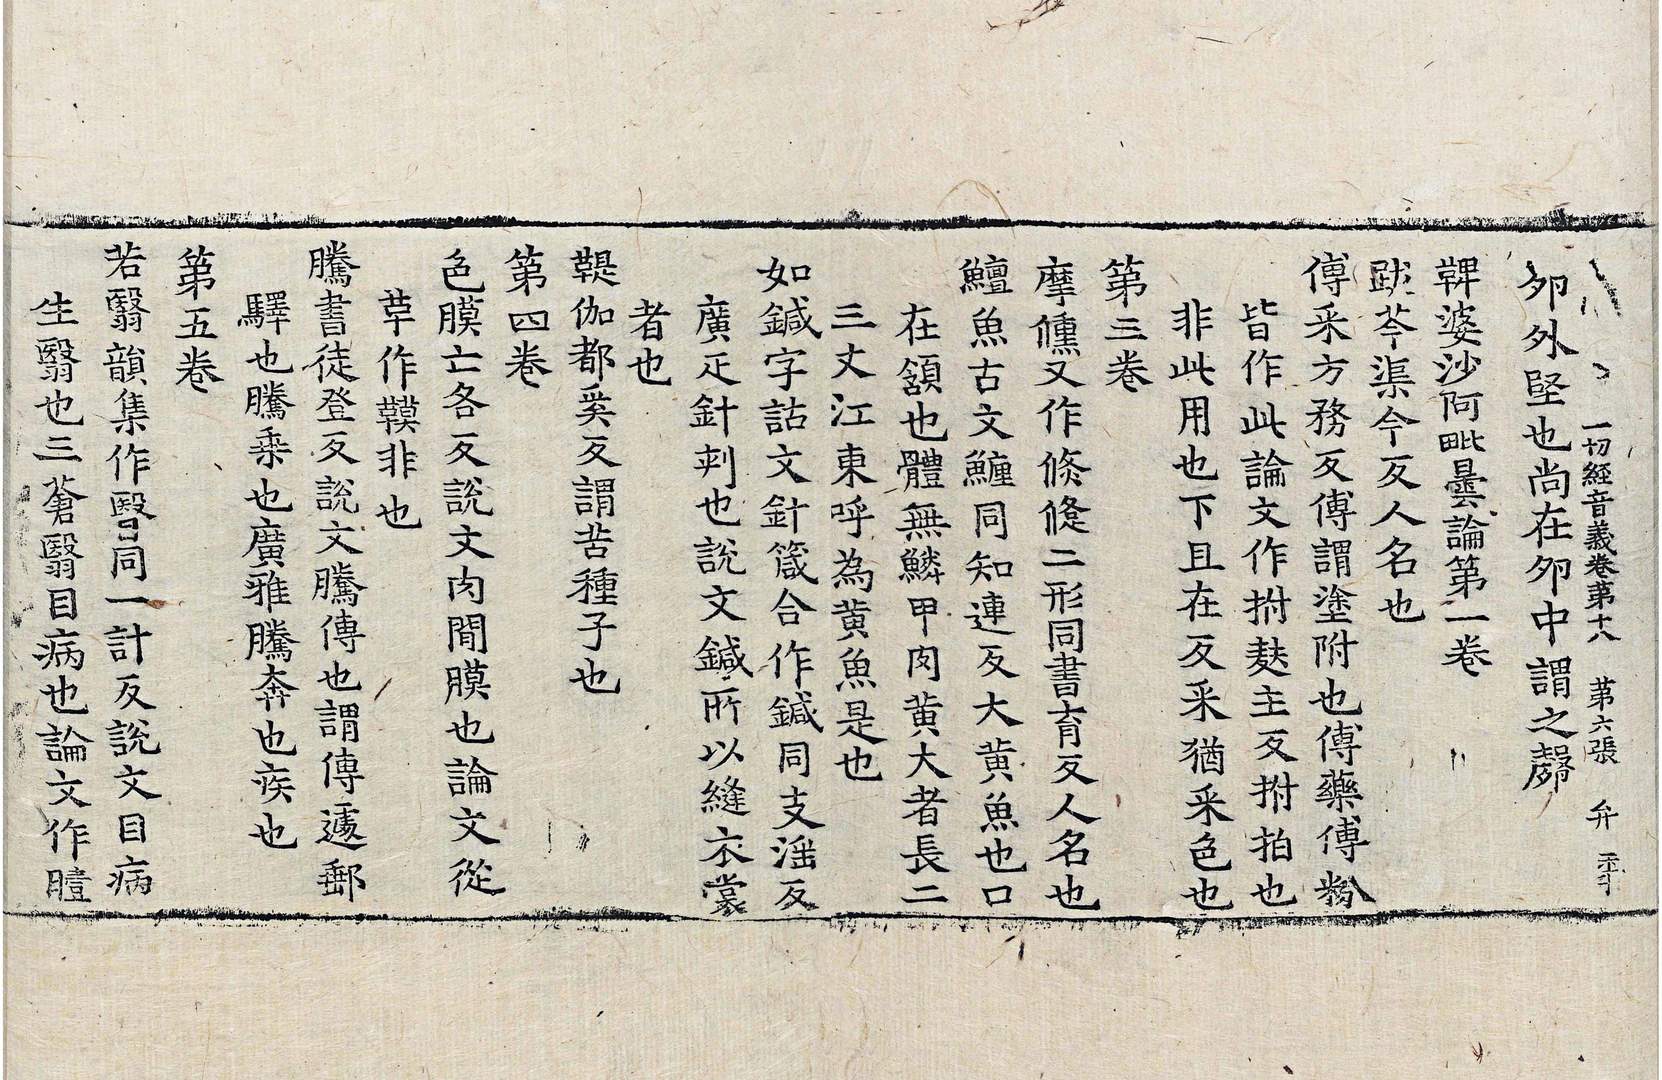 一切経音義卷第十八 第六張 弁
夘外堅也尚在夘中謂之㱿
鞞婆沙阿毗曇論第一卷
跋芩渠今反人名也
傅采方務反傅謂塗附也傅藥傅粉
皆作此論文作拊麸主反拊拍也
非此用也下且在反采猶采色也
第三卷
摩儵又作倏㒄二形同書育反人名也
鱣魚古文䱼同知連反大黄魚也口
在頷也體無鱗甲肉黄大者長二
三丈江東呼為黄魚是也
如鍼字詁文針箴合作鍼同支淫反
廣疋針刺也說文鍼所以縫衣裳
者也
鞮伽都奚反謂苦種子也
第四卷
色膜亡各反說文肉閒膜也論文從
草作䩋非也
騰書徒登反說文騰傳也謂傳遽郵
驛也騰乗也廣雅騰奔也疾也
第五卷
若翳韻集作瞖同一計反說文目病
生翳也三蒼翳目病也論文作曀